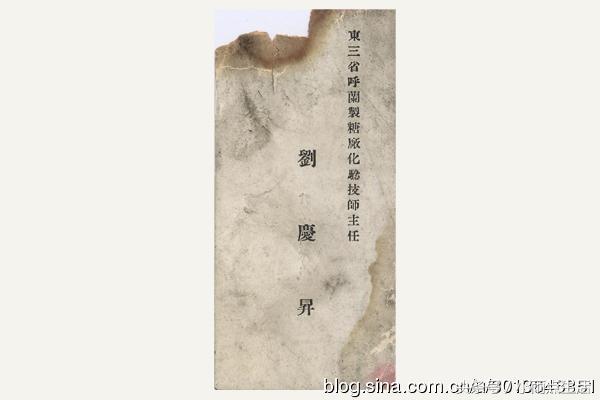 東三省呼蘭製糖廠化驗技師主任
劉慶昇
blog.sina.com.cn/u/